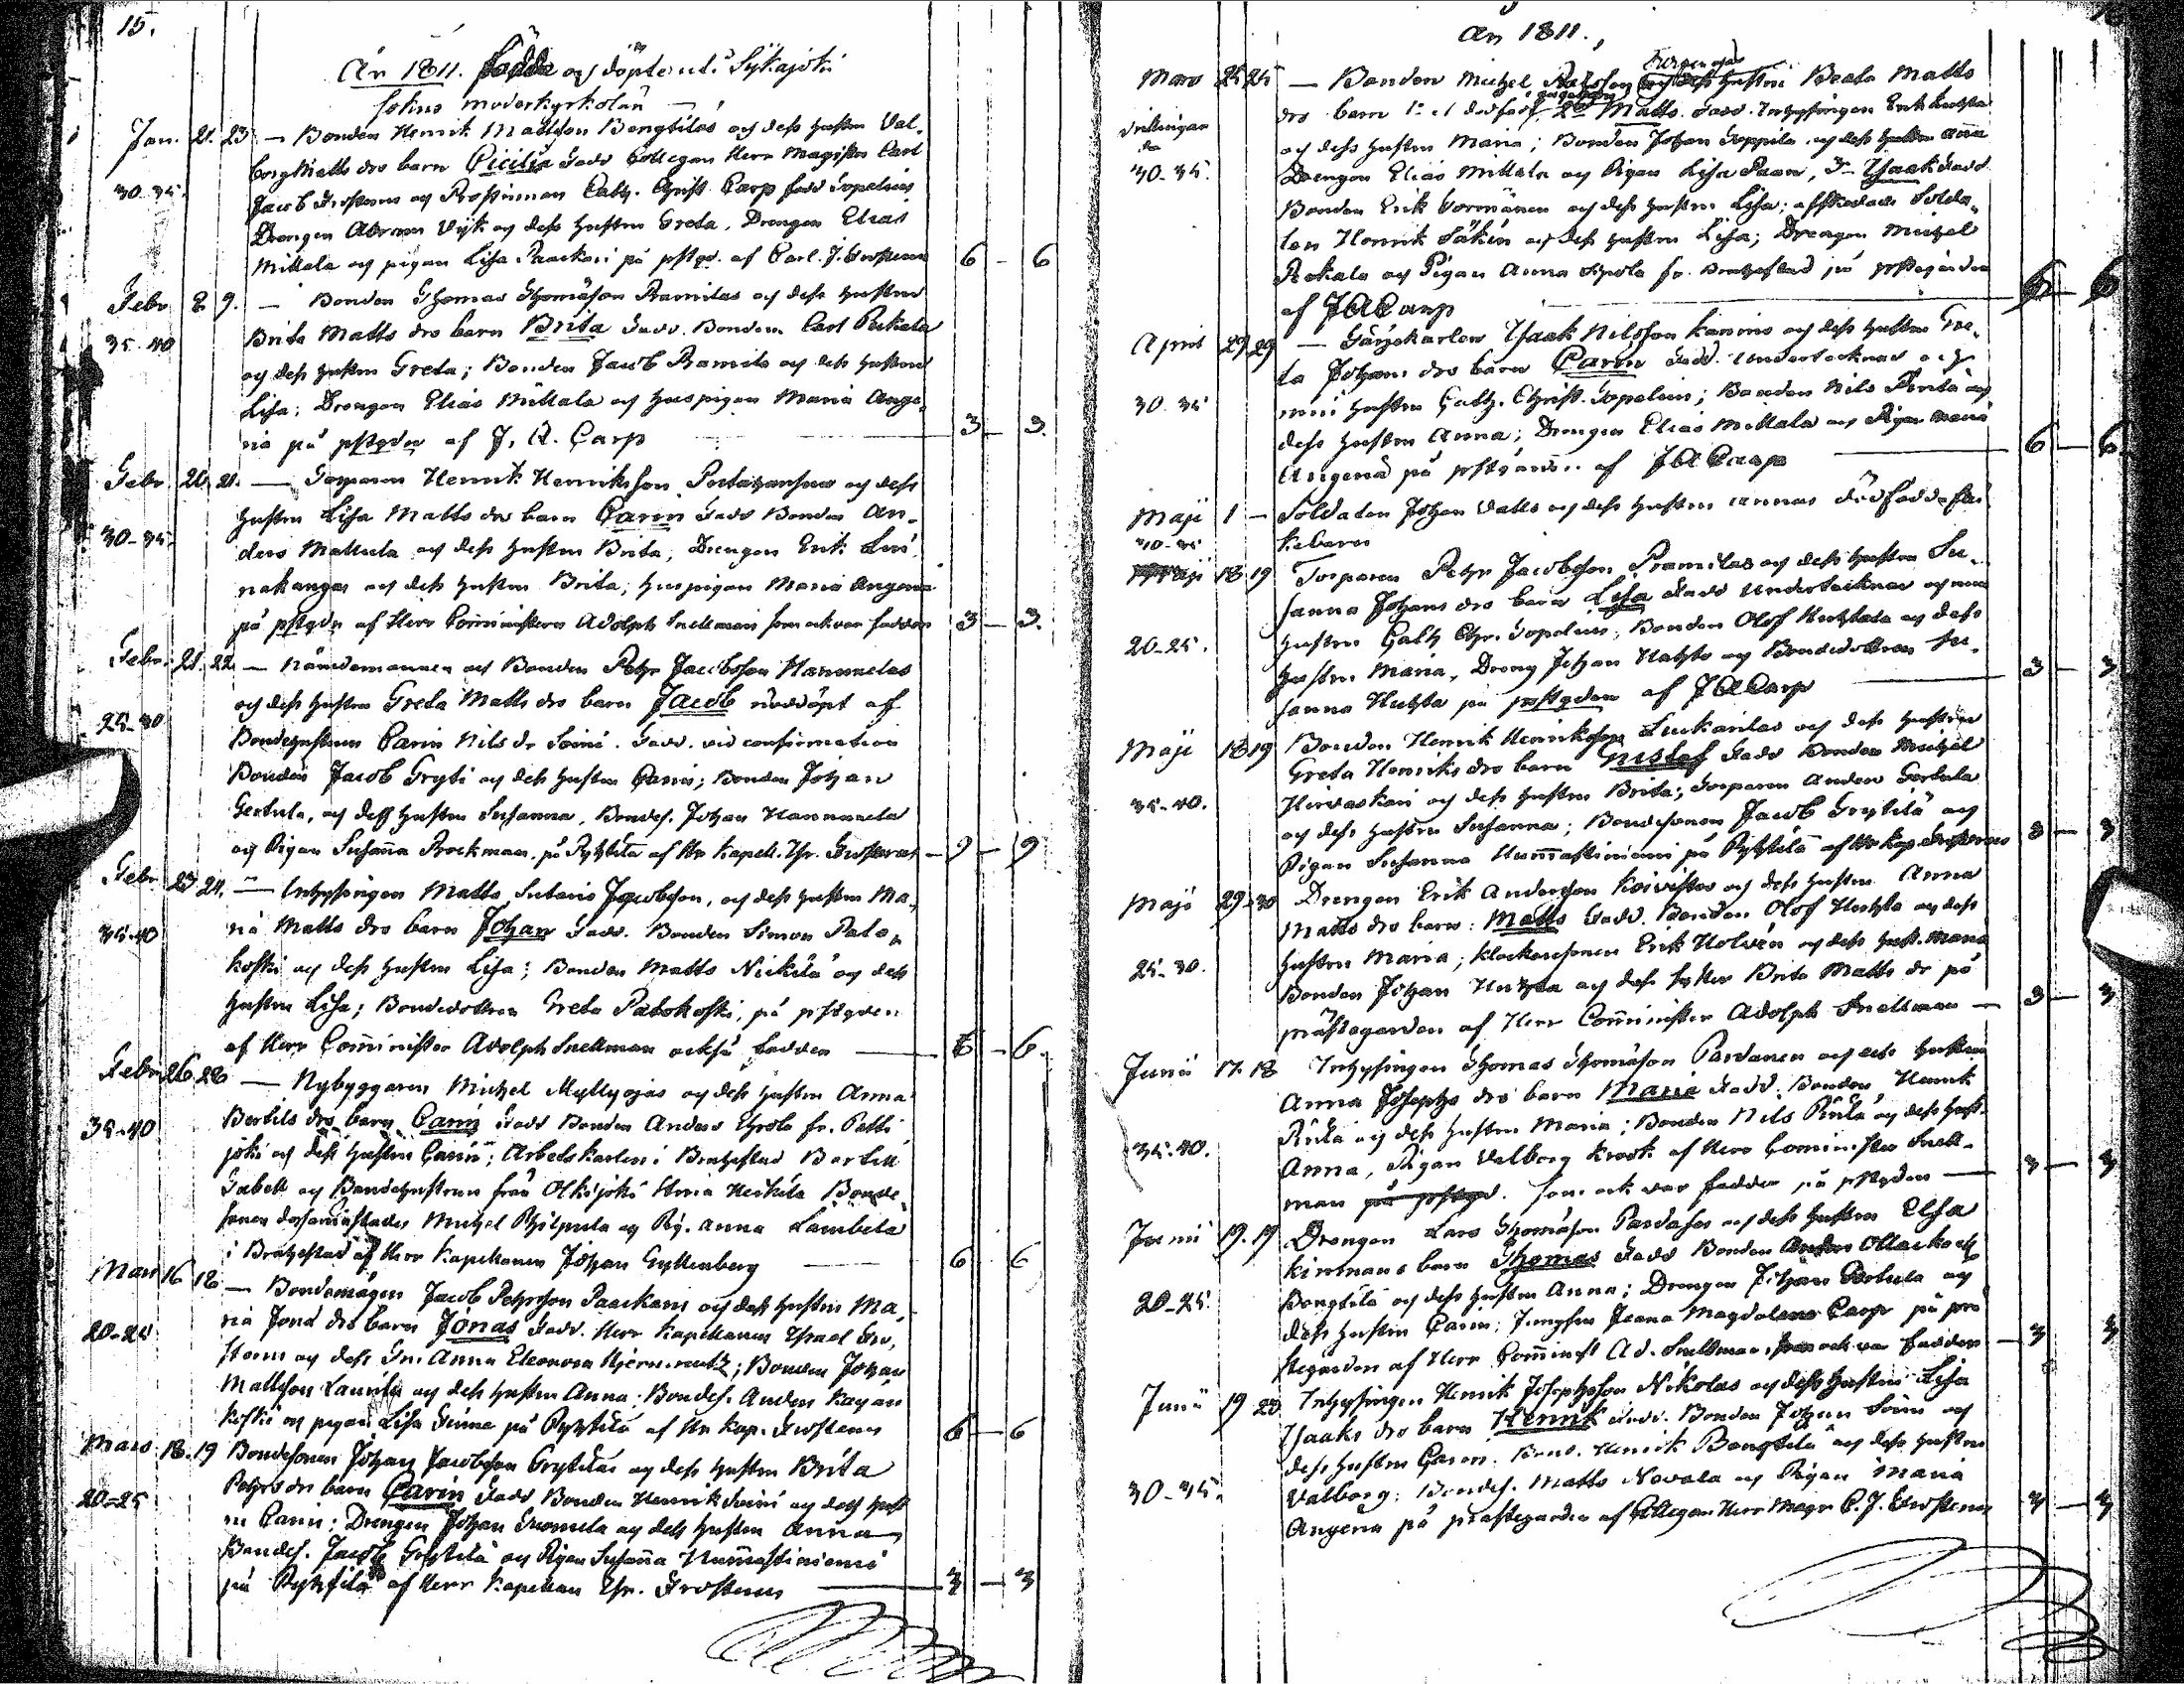 15.
År 1811. födde och döpte uti Sikajoki
sokns moderkyrkolän
Jan. 21. 23 — Bonden Henrik Mattson Bengtilas och dess hustru Val-
borg Matts drs barn Cicilia Fadd. Collegan Herr Magister Carl
30-35. Jacob Frosterus och Prostinnan Cath. Christ. Carp född Topelius
Drengen Abram Wijk och dess hustru Greta, Drengen Elias
Mittala och pigan Lisa Paackari på pstgd. af Carl. J. Frosterus 6 — 6
Febr 8 9. — Bonden Thomas Thomasson Ramilas och dess hustru
Brita Matts drs barn Brita Fadd. Bonden Carl Pekala
35-40 och dess hustru Greta; Bonden Jacob Ramila och dess hustru
Lisa; Drengen Elias Mittala och huspigan Maria Ange-
ria på pstgdn af J. A. Carp 3 — 3.
Febr. 20. 21. — Torparen Henrik Henriksson Portahansas och dess
hustru Lisa Matts drs barn Carin Fadd Bonden An-
30-35. ders Mattula och dess hustru Brita, Drengen Erik
nakangas och dess hustru Brita, huspigan Maria Angeria
på pstgdn af Herr Comministern Adolph Snellman som ock var fadder 3 — 3.
Febr. 21. 22 — Nämdemannen och Bonden Petr Jacobsson Hannuelas
och dess hustru Greta Matts drs barn Jacob nöddöpt af
25-30 Bondehustrun Carin Nils dr Soini. Fadd. vid confirmation
Bonden Jacob Gryti och dess hustru Carin; Bonden Johan
Gertula, och dess hustru Susanna, Bondes. Johan Hannuela
och Pigan Susanna Brockman på Pyhtilä af Hr Kapell. Isr. Frosterus — 9 — 9
Febr 23 24. — Inhysingen Matts Jacobsson, och dess hustru Ma-
35-40 ria Matts drs barn Johan Fadd. Bonden Simon Pato-
koski och dess hustru Lisa; Bonden Matts Nickilä och dess
hustru Lisa; Bondedottren Greta Patokoski, på pstgden
af Herr Comminister Adolph Snellman också fadder — 6 — 6.
Febr 26. 28 — Nybyggaren Michel Myllyojas och dess hustru Anna
35-40 Bertils drs barn Carin Fadd Bonden Anders fr. Patti
joki och dess hustru Carin; Arbetskarlen i Brahestad Bertill
och Bondehustrun från Olkijoki Heikilä Bonde
sonen Michel Philpula och Pig. Anna
i Brahestad af Herr Kapellanen Johan Gyllenberg — 6 6
Mars 16 18 — Bondemågen Jacob Petersson Paackari och dess hustru Ma-
20-25 ria Jona drs barn Jonas Fadd. Herr Kapellanen Israel Fro-
sterus och dess Fru Anna Eleonora; Bonden Johan
Mattsson Laurila och dess hustru Anna; Bondes. Anders Kajan
koski och pigan Lisa på Pyhtilä af Hr Kap. Frosterus 6 — 6
Mars 18. 19 Bondesonen Johan Jacobsson Grytilas och dess hustru Brita
20-25 Petrs drs barn Carin Fadd Bonden Henrik Soini och dess hust
ru Carin; Drengen Johan Suomela och dess hustru Anna
Bondes. Jacob Grytilä och Pigan Susanna Hummastiniemi
på Pyhtilä af Herr Kapellan Isr. Frosterus — 3 — 3
År 1811.
Mars 25 25 — Bonden Michel och dess hustru Beata Matts
drs barn 1:o et dödfödt, 2:o Matts. Fadd. Inhysingen Erik Huhta
trillingar och dess hustru Maria; Bonden Johan Toppila och dess hustru Anna
30-35. Drengen Elias Mittala och Pigan Lisa Paan, 3:o Isaak Fadd
Bonden Erik Vormänen och dess hustru Lisa; affskedade Solda-
ten Henrik Säkin och dess hustru Lisa; Drengen Michel
Pekala och Pigan Anna fr. Brahestad på pstegården
af J A Carp — 6 — 6
April 29 29 — Gårdskarlen Isaak Nilsson Kanins och dess hustru Gre-
ta Johans drs barn Carin Fadd. Undertecknad och
30-35 min hustru Cath. Christ. Topelius; Bonden Nils och
dess hustru Anna; Drengen Elias Mittala och Pigan Maria
Angeria på pstgården af J A Carp — 6 — 6
Maji 1 — Soldaten Johan Valls och dess hustru Annas dödfödda flic
30-35 kebarn
Maji 18 19 Torparen Petr Jacobsson Ramilas och dess hustru Su-
sanna Johans drs barn Lisa Fadd Undertecknad och min
20-25. hustru Cath Chr. Topelius; Bonden Olof Huhtala och dess
hustru Maria, Dreng Johan Huhta och Bondedottren Su-
sanna Huhta på pstgden af J A Carp — 3 — 3
Maji 18 19 Bonden Henrik Henriksson Luckarilas och dess hustru
Greta Henriks drs barn Gustaf Fadd Bonden Michel
35-40. Hirvaskari och dess hustru Brita; Torparen Anders Gertula
och dess hustru Susanna; Bondesonen Jacob Grytilä och
Pigan Susanna Hummastiniemi på Pyhtilä af Hr Kap. Frosterus 3 — 3
Maji 29-30 Drengen Erik Andersson Koivistos och dess hustru Anna
Matts drs barn: Matts Fadd. Bonden Olof Huhta och dess
25-30. hustru Maria; klockaresonen Erik Holvén och dess hust. Maria
Bonden Johan Huhta och dess syster Brita Matts dr på
prästegården af Herr Comminister Adolph Snellman — 3 — 3
Junii 17. 18 Inhysingen Thomas Thomasson Pardanen och dess hustru
Anna Josephs drs barn Maria Fadd. Bonden Henrik
och dess hustru Maria; Bonden Nils och dess hust.
35-40. Anna, Pigan Valborg Krook af Herr Comminister Snell-
man som ock var fadder på pstgden — 3 — 3
Junii 19. 19 Drengen Lars Thomasson Pardases och dess hustru Elsa
Kinmans barn Thomas Fadd Bonden Anders
20-25. Bengtilä och dess hustru Anna; Drengen Johan Gertula och
dess hustru Carin; Jungfru Joana Magdalena Carp på prä
stegården af Herr Comminist Ad. Snellman som ock var fadder — 3 3
Junii 19 23 Inhysingen Henrik Josephsson Nikolas och dess hustru Lisa
Isaaks drs barn Henrik Fadd. Bonden Johan Soini och
dess hustru Caren; Bond. Henrik Bengtilä och dess hustru
30-35. Valborg; Bondes. Matts Navala och Pigan Maria
Angeria på prästegården af Collegan Herr Magr C. J. Frosterus 3 — 3